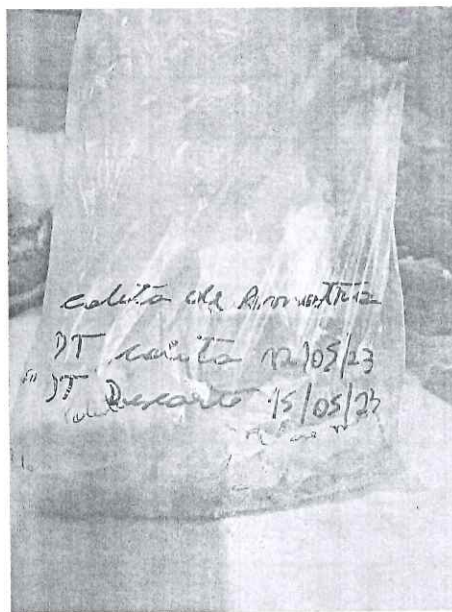 coleta de Amostra
DT coleta 12/05/23
DT Descarte 15/05/23